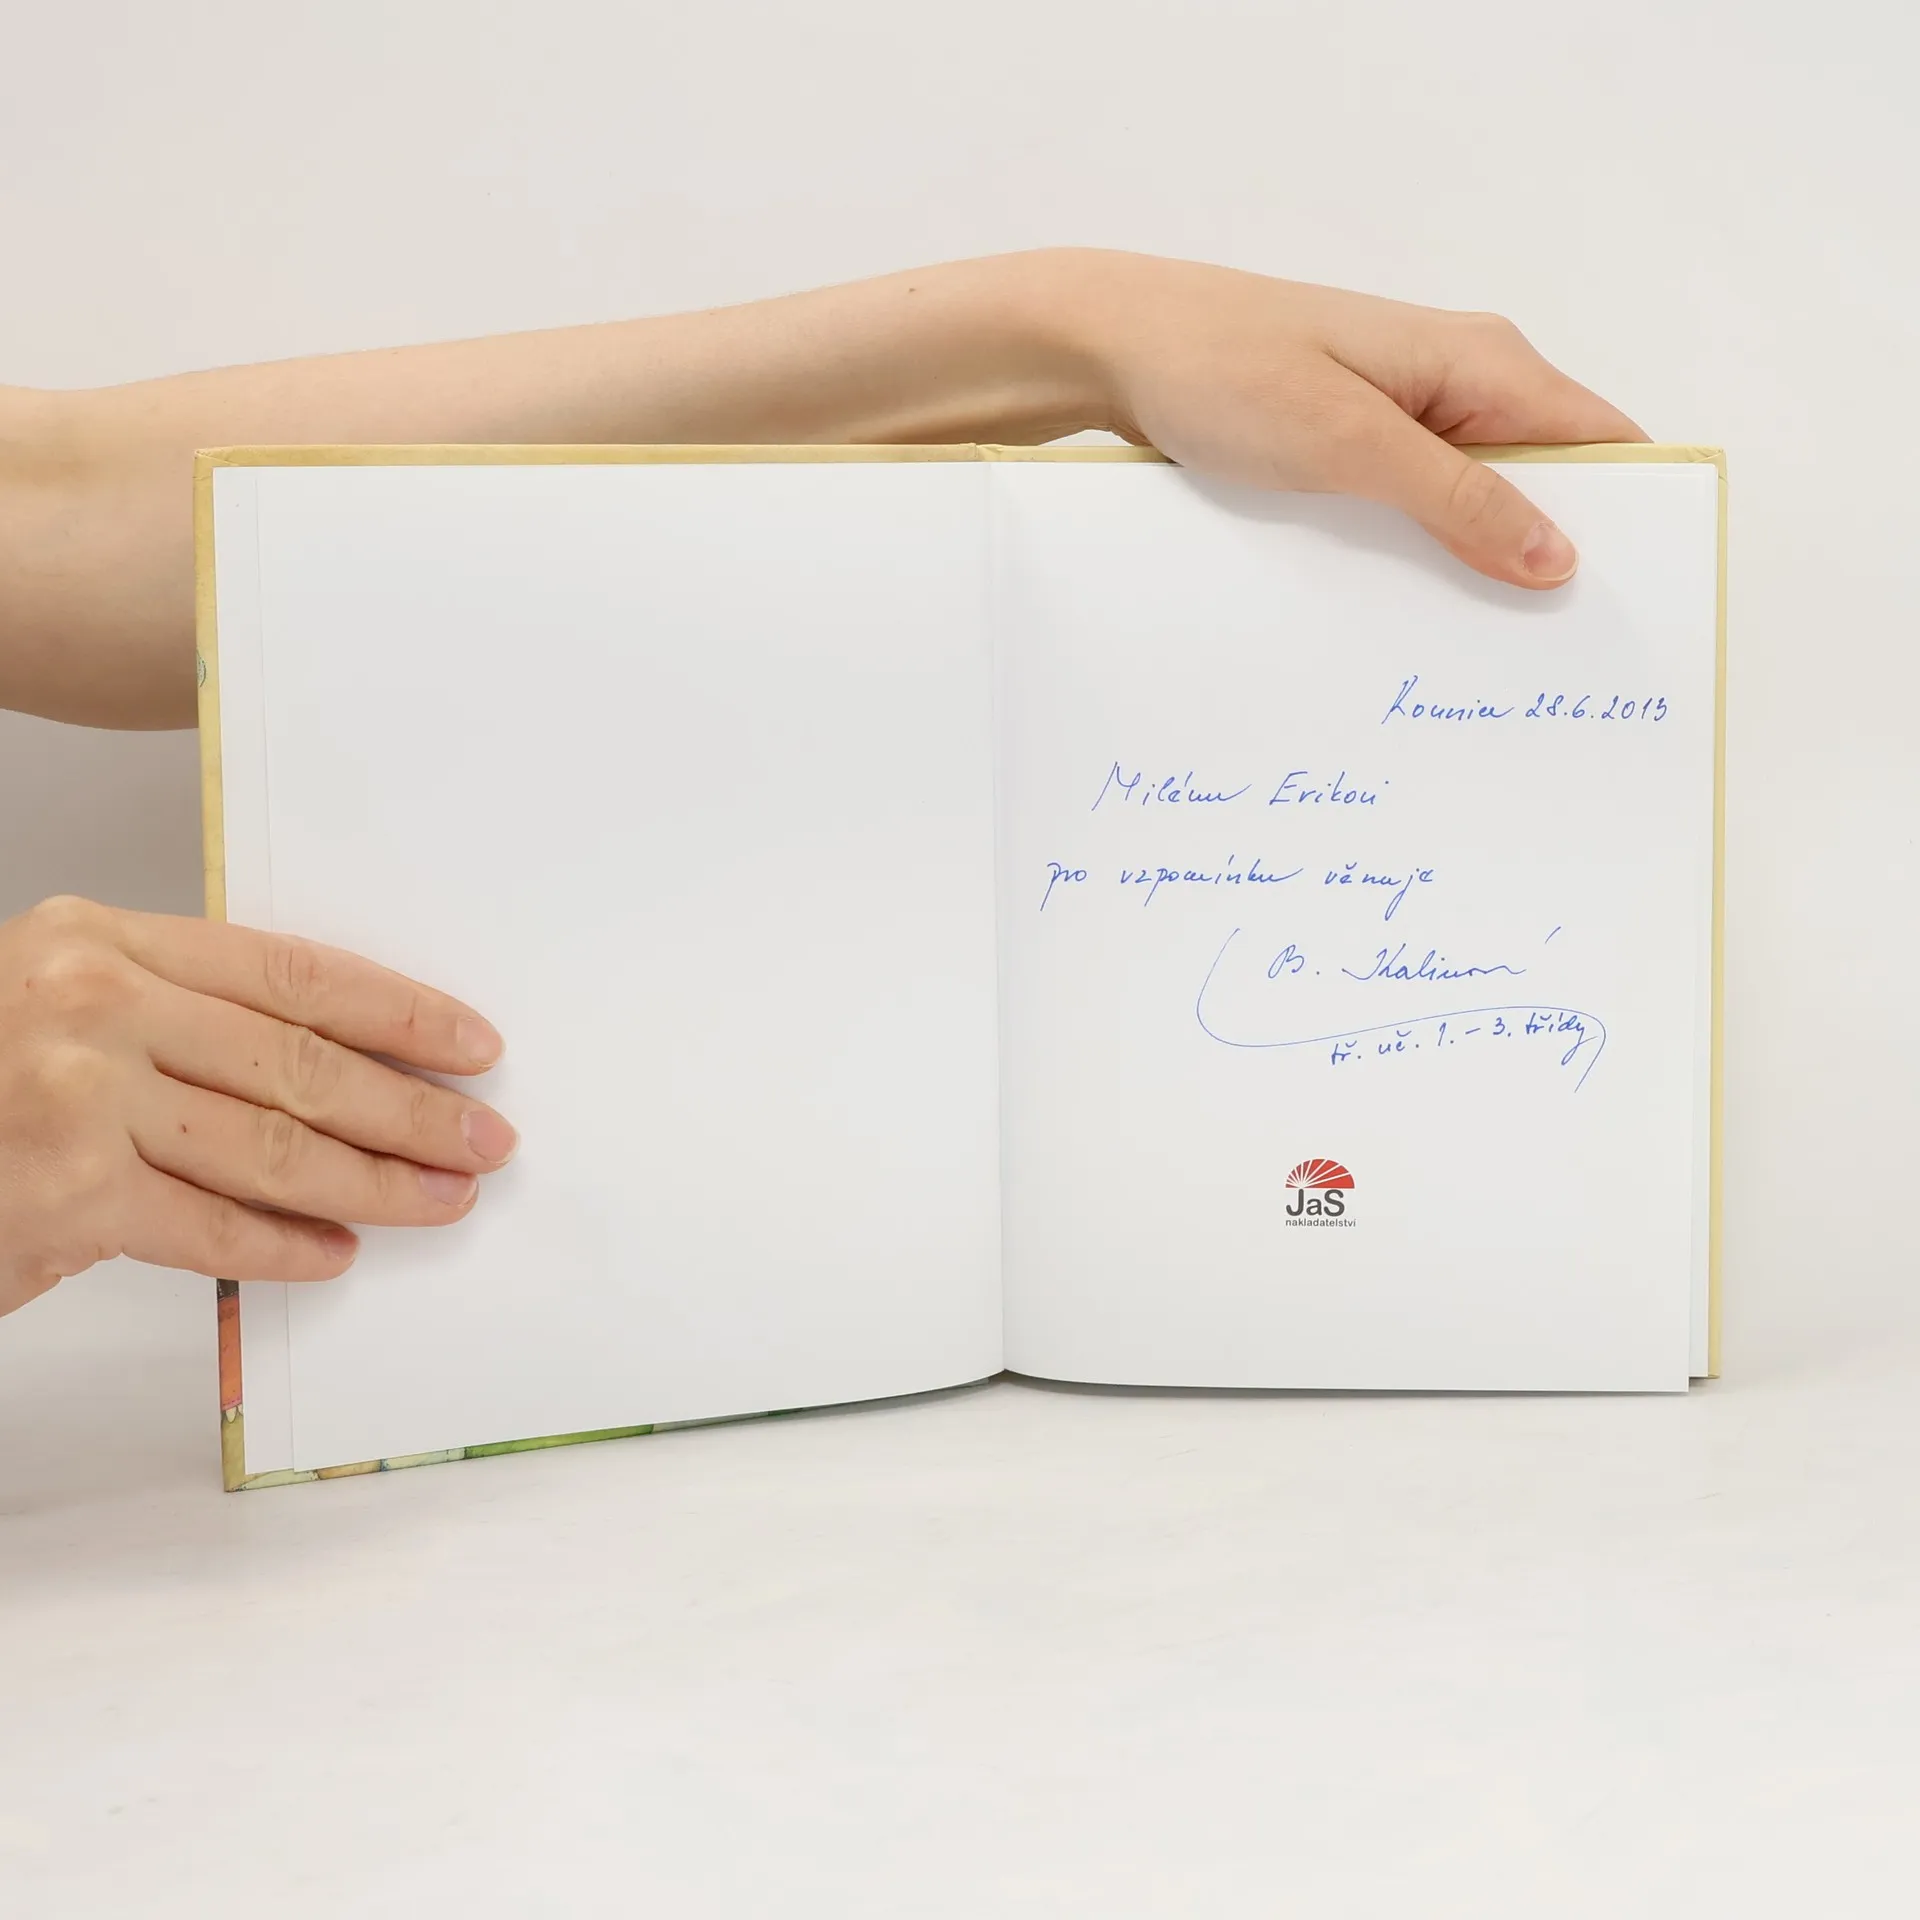 Kounice 28.6.2013
Milému Erikovi
pro vzpomínku věnuje
B. Kalinová
tř. uč. 1. - 3. třídy
JaS
nakladatelství